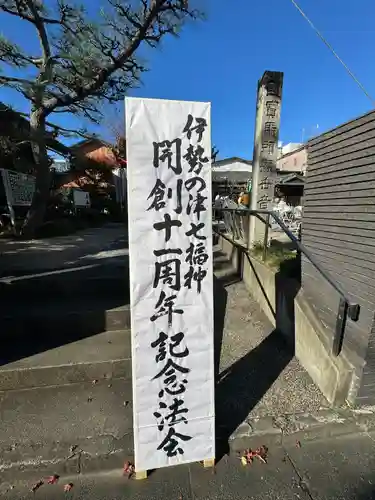 伊勢の津七福神
開創十一周年記念法会